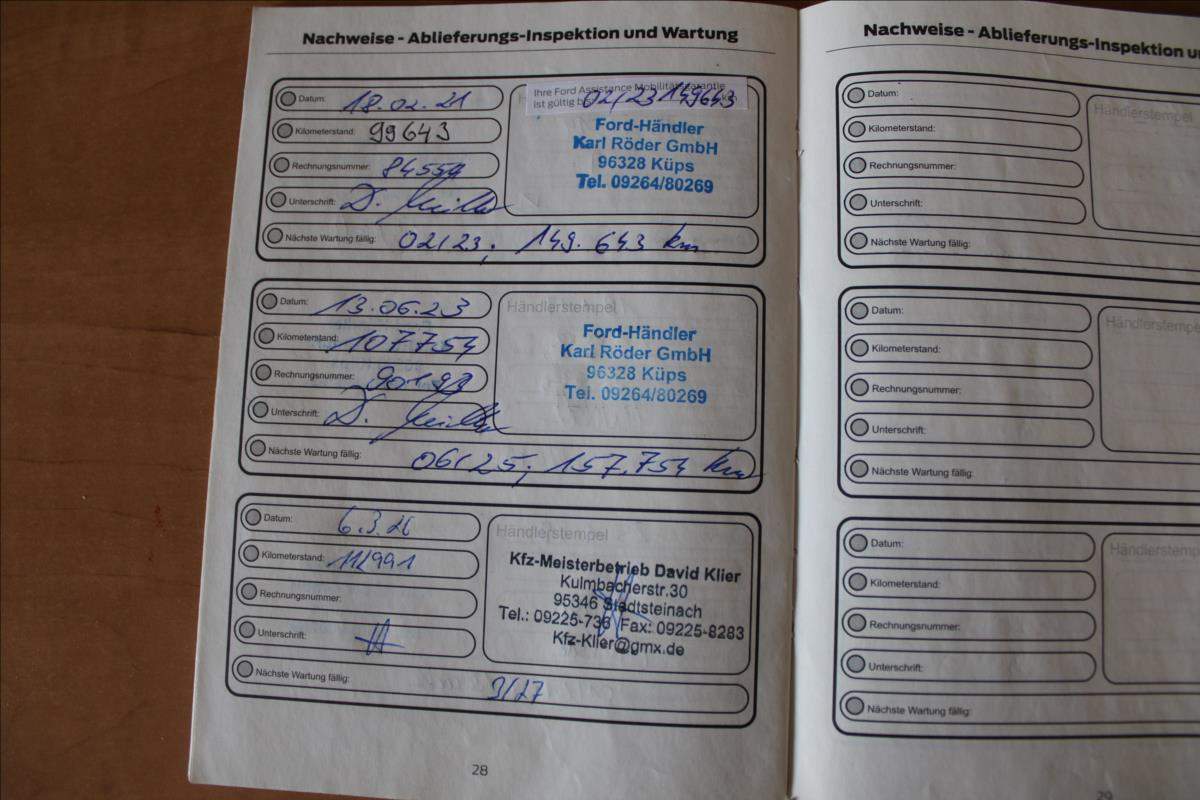 Nachweise - Ablieferungs-Inspektion und Wartung
Datum: 18.02.21
Kilometerstand: 99643
Rechnungsnummer: 84559
Unterschrift: D.
Nächste Wartung fällig: 02/23, 149.643 km
Ihre Ford Assistance Mobilitätsgarantie
ist gültig 02/23 149643
Ford-Händler
Karl Röder GmbH
96328 Küps
Tel. 09264/80269
Datum: 13.06.23
Kilometerstand: 107754
Rechnungsnummer:
Unterschrift: D.
Nächste Wartung fällig: 06/25, 157.754 km
Händlerstempel
Ford-Händler
Karl Röder GmbH
96328 Küps
Tel. 09264/80269
Datum: 6.3.26
Kilometerstand:
Rechnungsnummer:
Unterschrift:
Nächste Wartung fällig: 3/27
Händlerstempel
Kfz-Meisterbetrieb David Klier
Kulmbacherstr.30
95346 Stadtsteinach
Tel.: 09225-736 Fax: 09225-8283
Kfz-Klier@gmx.de
28
Nachweise - Ablieferungs-Inspektion
Datum:
Kilometerstand:
Rechnungsnummer:
Unterschrift:
Nächste Wartung fällig:
Händlerstempel
Datum:
Kilometerstand:
Rechnungsnummer:
Unterschrift:
Nächste Wartung fällig:
Händlerstempel
Datum:
Kilometerstand:
Rechnungsnummer:
Unterschrift:
Nächste Wartung fällig:
Händlerstempel
29